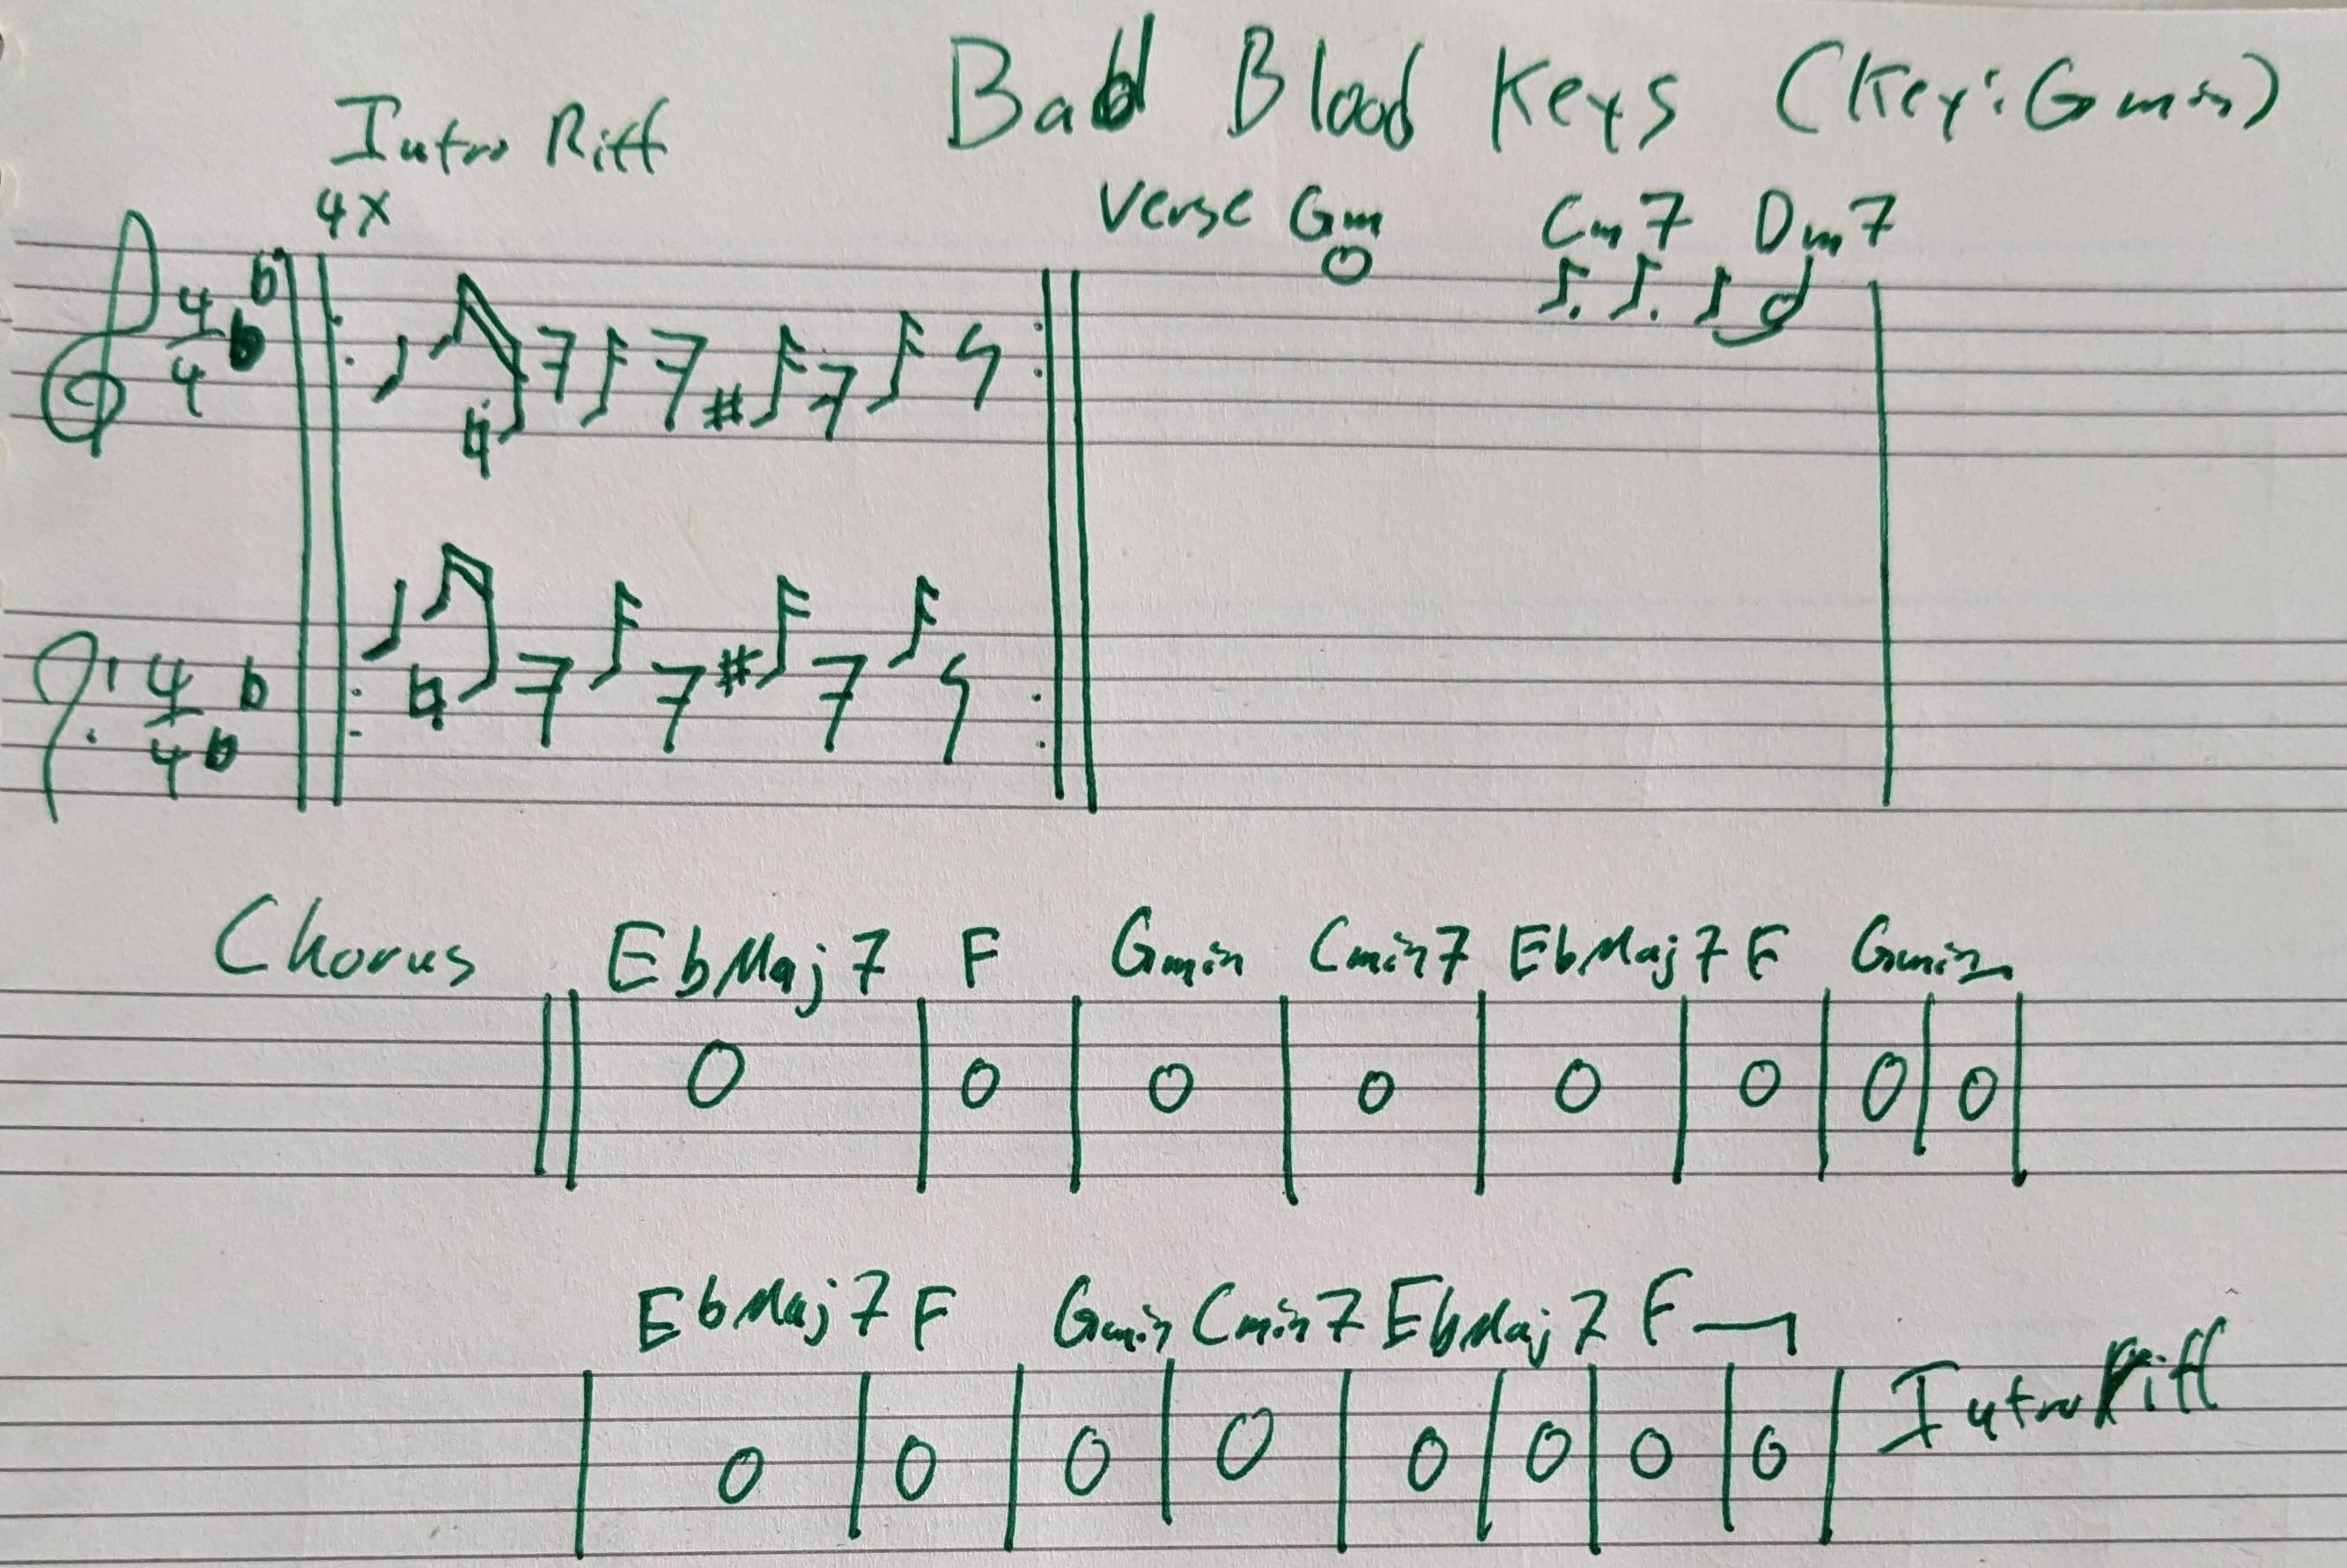 Bad Blood Keys (Key: Gmin)
Intro Riff
4x
Verse Gm Cm7 Dm7
4 4
4 4
Chorus EbMaj7 F Gmin Cmin7 EbMaj7 F Gmin
EbMaj7 F Gmin Cmin7 EbMaj7 F
Intro Riff